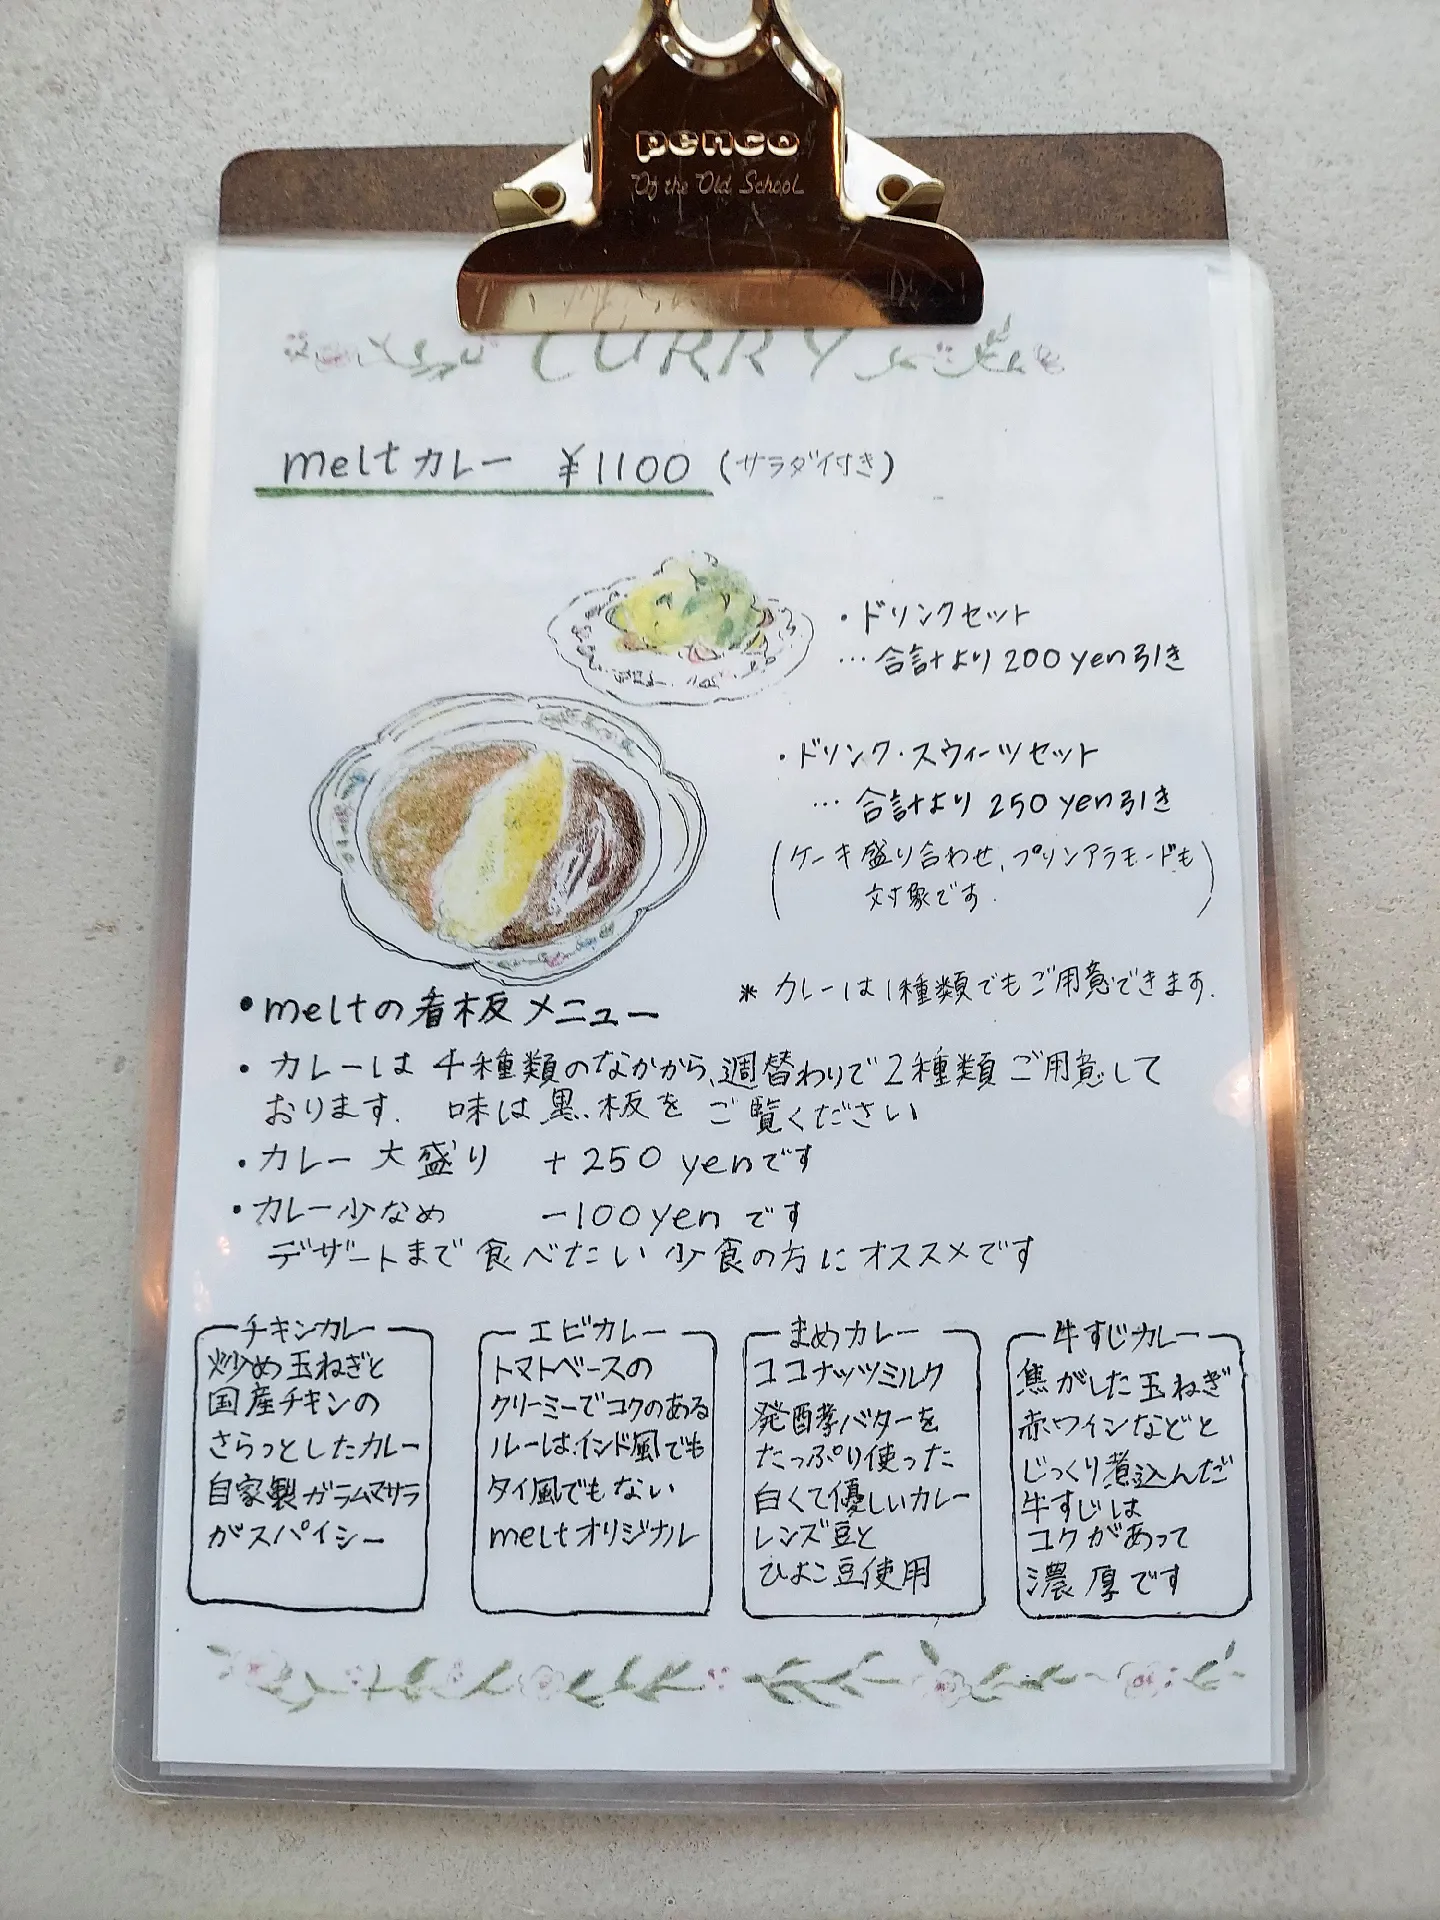 penco
Of the Old School
CURRY
meltカレー ¥1100 (サラダ付き)
・ドリンクセット
… 合計より 200yen引き
・ドリンク・スウィーツセット
… 合計より 250yen引き
(ケーキ盛り合わせ、プリンアラモードも
対象です.)
* カレーは1種類でもご用意できます.
・meltの看板メニュー
・カレーは 4種類のなかから、週替わりで2種類ご用意して
おります. 味は黒板をご覧ください
・カレー 大盛り +250 yenです
・カレー少なめ -100yen です
デザートまで食べたい少食の方にオススメです
チキンカレー
炒め玉ねぎと
国産チキンの
さらっとしたカレー
自家製ガラムマサラ
がスパイシー
エビカレー
トマトベースの
クリーミーでコクのある
ルーは、インド風でも
タイ風でもない
meltオリジナル
まめカレー
ココナッツミルク
発酵バターを
たっぷり使った
白くて優しいカレー
レンズ豆と
ひよこ豆使用
牛すじカレー
焦がした玉ねぎ
赤ワインなどと
じっくり煮込んだ
牛すじは
コクがあって
濃厚です